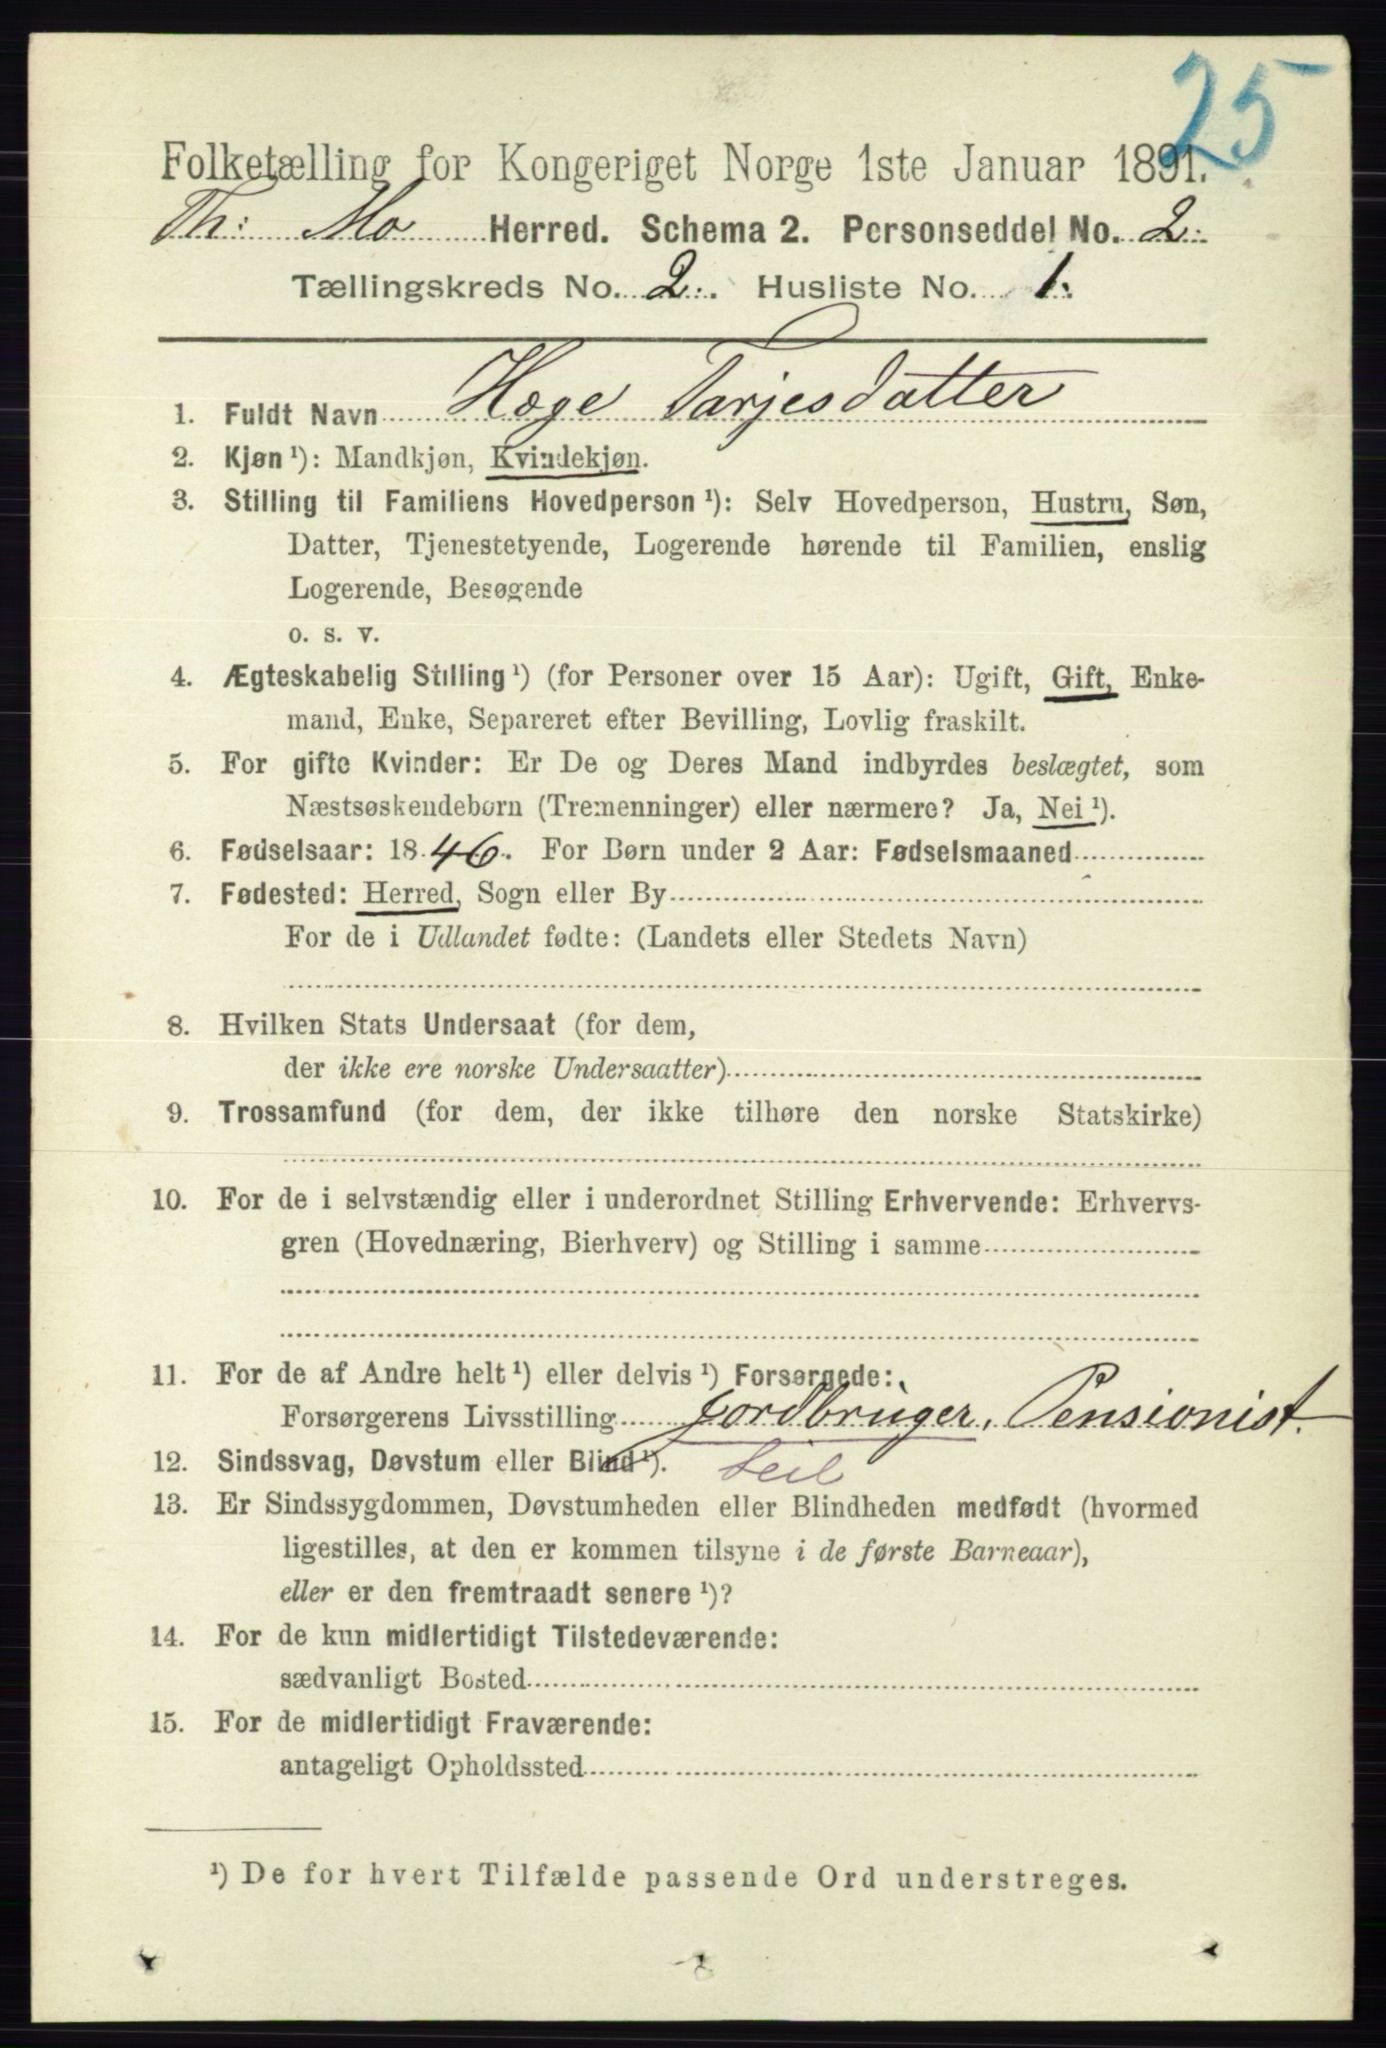 25
Folketælling for Kongeriget Norge 1ste Januar 1891.
Th: Mo Herred. Schema 2. Personseddel No. 2.
Tællingskreds No. 2. Husliste No. 1.
1. Fuldt Navn Hæge Tarjesdatter
2. Kjøn ¹): Mandkjøn, Kvindekjøn.
3. Stilling til Familiens Hovedperson ¹): Selv Hovedperson, Hustru, Søn,
Datter, Tjenestetyende, Logerende hørende til Familien, enslig
Logerende, Besøgende
o. s. v.
4. Ægteskabelig Stilling ¹) (for Personer over 15 Aar): Ugift, Gift, Enke-
mand, Enke, Separeret efter Bevilling, Lovlig fraskilt.
5. For gifte Kvinder: Er De og Deres Mand indbyrdes beslægtet, som
Næstsøskendebørn (Tremenninger) eller nærmere? Ja, Nei ¹).
6. Fødselsaar: 1846. For Børn under 2 Aar: Fødselsmaaned
7. Fødested: Herred, Sogn eller By
For de i Udlandet fødte: (Landets eller Stedets Navn)
8. Hvilken Stats Undersaat (for dem,
der ikke ere norske Undersaatter)
9. Trossamfund (for dem, der ikke tilhøre den norske Statskirke)
10. For de i selvstændig eller i underordnet Stilling Erhvervende: Erhvervs-
gren (Hovednæring, Bierhverv) og Stilling i samme
11. For de af Andre helt ¹) eller delvis ¹) Forsørgede:
Forsørgerens Livsstilling Jordbruger, Pensionist.
12. Sindssvag, Døvstum eller Blind ¹).
13. Er Sindssygdommen, Døvstumheden eller Blindheden medfødt (hvormed
ligestilles, at den er kommen tilsyne i de første Barneaar),
eller er den fremtraadt senere ¹)?
14. For de kun midlertidigt Tilstedeværende:
sædvanligt Bosted
15. For de midlertidigt Fraværende:
antageligt Opholdssted
¹) De for hvert Tilfælde passende Ord understreges.